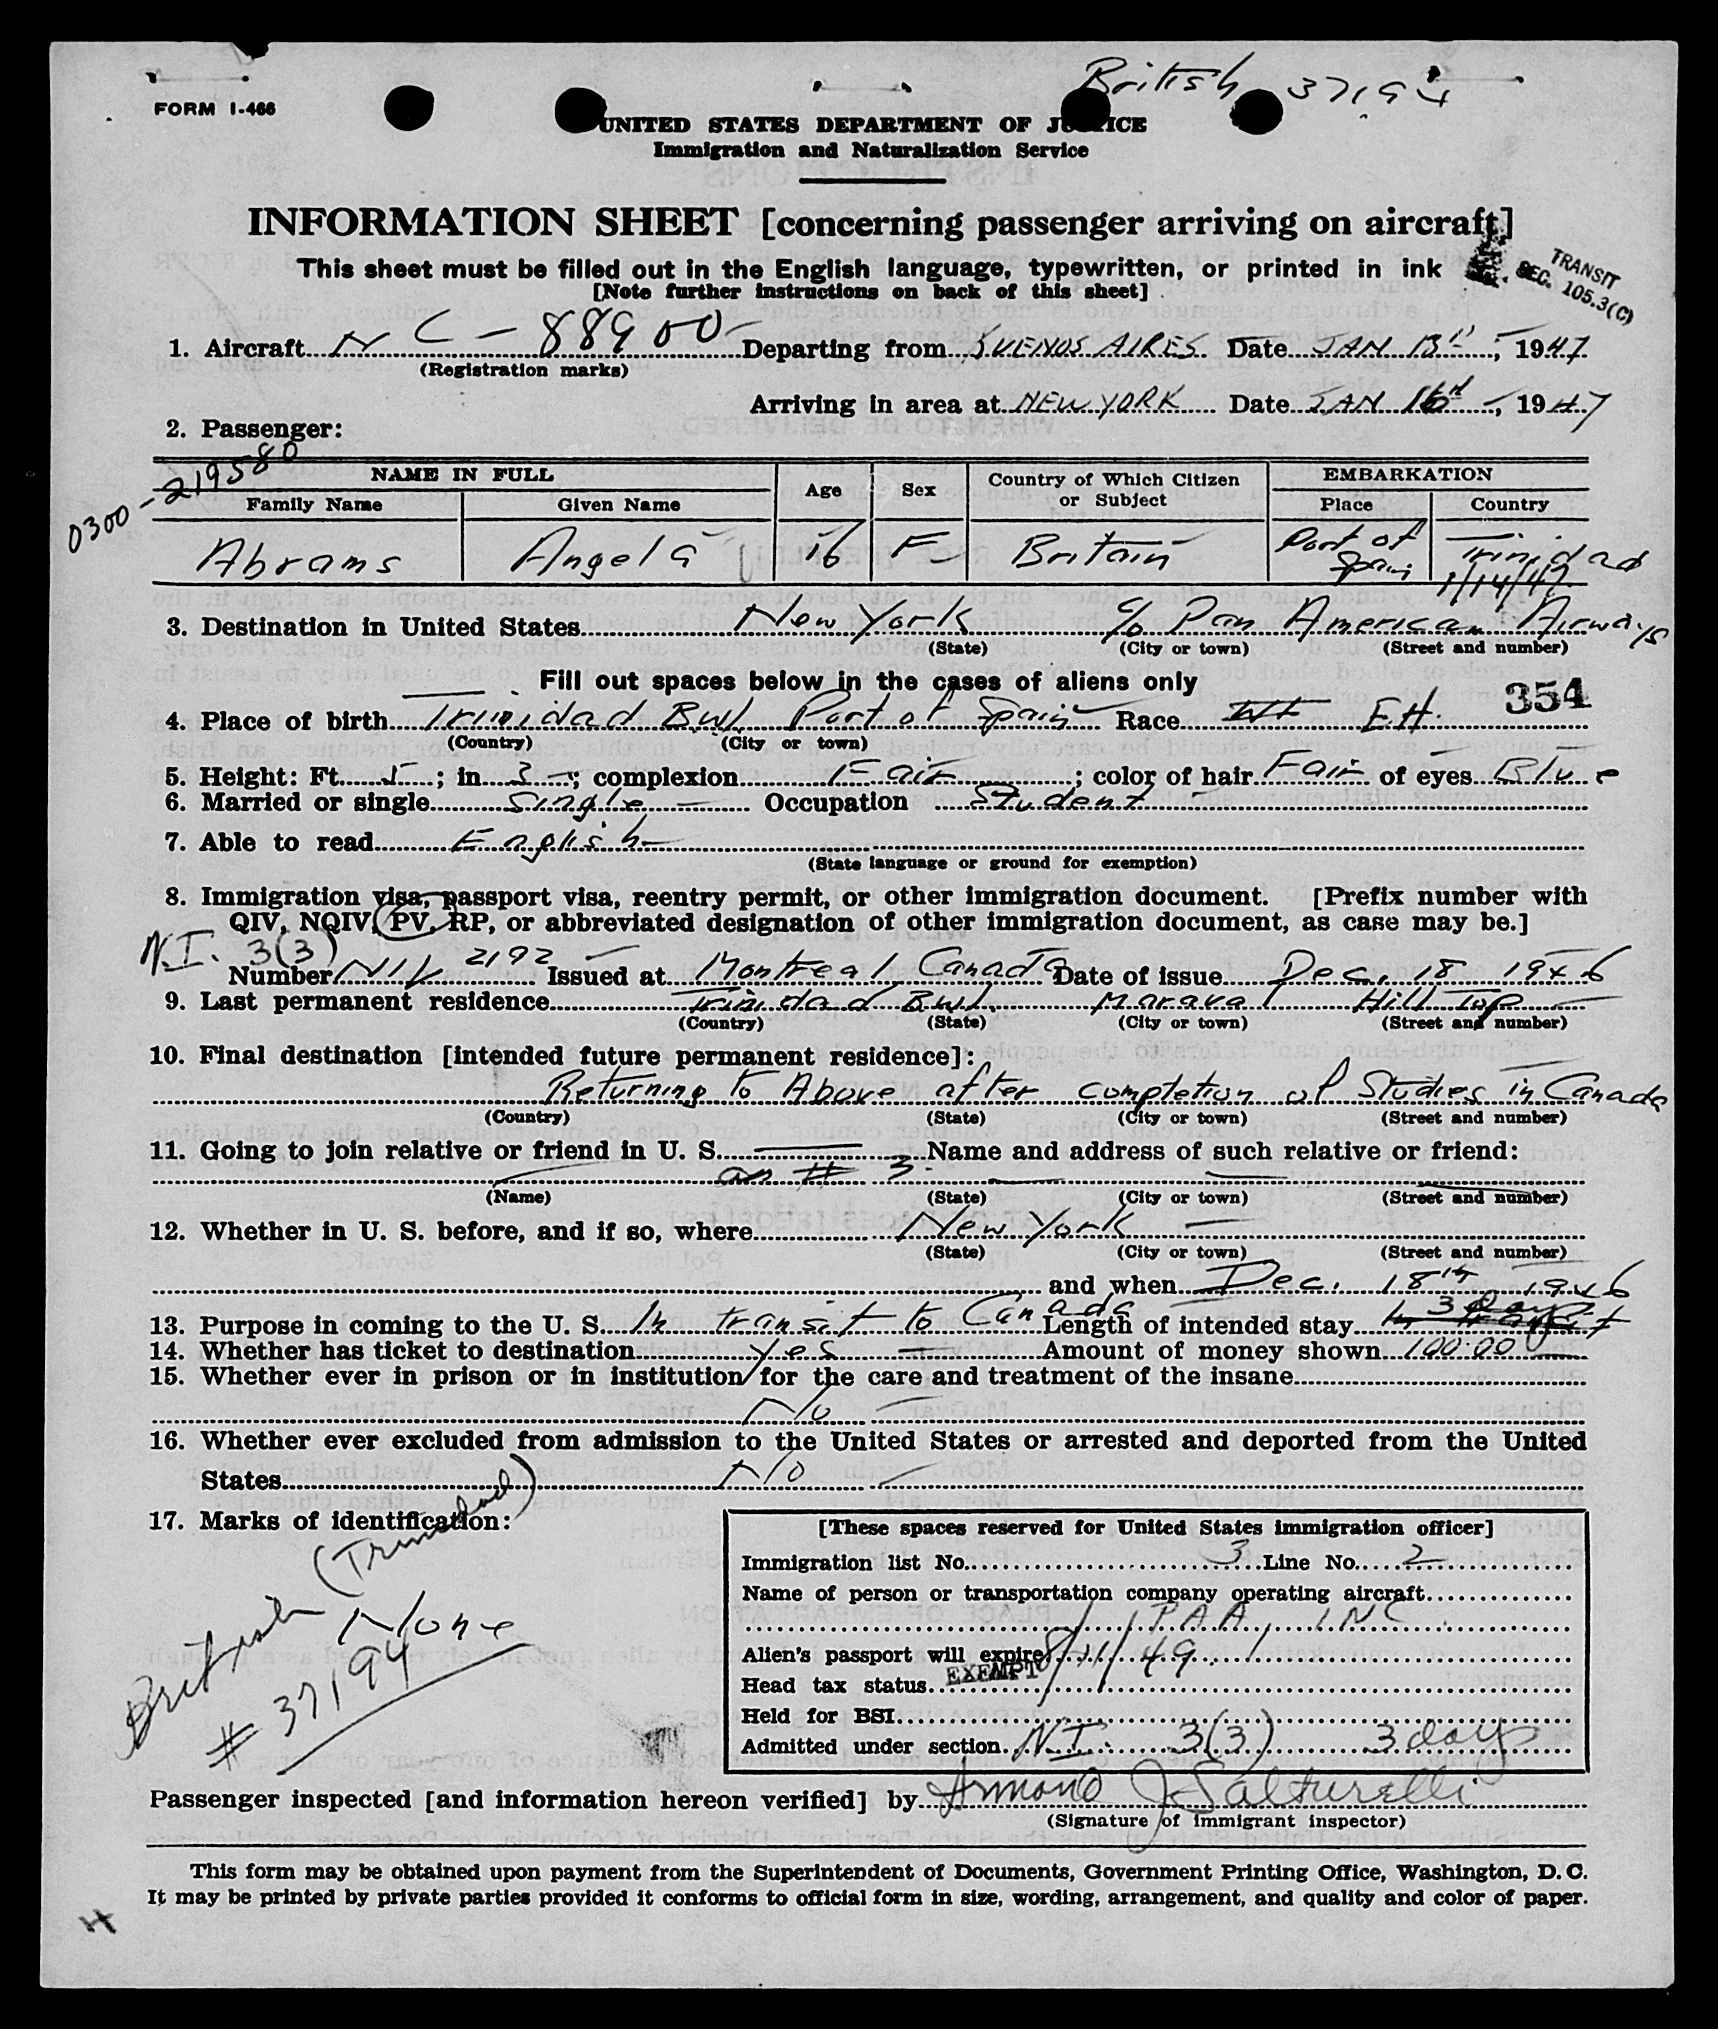 British 37194
FORM I-466
UNITED STATES DEPARTMENT OF JUSTICE
Immigration and Naturalization Service
INFORMATION SHEET [concerning passenger arriving on aircraft]
This sheet must be filled out in the English language, typewritten, or printed in ink
[Note further instructions on back of this sheet]
TRANSIT
SEC. 105.3(C)
1. Aircraft NC-88900 Departing from BUENOS AIRES Date JAN 13th, 1947
(Registration marks)
Arriving in area at NEW YORK Date JAN 16th, 1947
2. Passenger:
0300-219580
NAME IN FULL Age Sex Country of Which Citizen or Subject EMBARKATION
Family Name Given Name Place Country
Abrams Angela 16 F Britain Port of Spain Trinidad
1/14/47
3. Destination in United States New York c/o Pan American Airways
(State) (City or town) (Street and number)
Fill out spaces below in the cases of aliens only
354
4. Place of birth Trinidad B.W.I. Port of Spain Race Wt E.H.
(Country) (City or town)
5. Height: Ft. 5; in. 3; complexion Fair; color of hair Fair of eyes Blue
6. Married or single Single Occupation Student
7. Able to read English
(State language or ground for exemption)
8. Immigration visa, passport visa, reentry permit, or other immigration document. [Prefix number with
QIV, NQIV, PV, RP, or abbreviated designation of other immigration document, as case may be.]
N.I. 3(3)
Number 2192 Issued at Montreal Canada Date of issue Dec. 18 1946
9. Last permanent residence Trinidad B.W.I. Maraval Hill Top
(Country) (State) (City or town) (Street and number)
10. Final destination [intended future permanent residence]:
Returning to Above after completion of Studies in Canada
(Country) (State) (City or town) (Street and number)
11. Going to join relative or friend in U. S. Name and address of such relative or friend:
as # 3
(Name) (State) (City or town) (Street and number)
12. Whether in U. S. before, and if so, where New York
(State) (City or town) (Street and number)
and when Dec. 18th 1946
13. Purpose in coming to the U. S. In transit to Canada Length of intended stay 3 days In Transit
14. Whether has ticket to destination Yes Amount of money shown 100.00
15. Whether ever in prison or in institution for the care and treatment of the insane
No
16. Whether ever excluded from admission to the United States or arrested and deported from the United
States No
17. Marks of identification:
None
British (Trinidad)
# 37194
[These spaces reserved for United States immigration officer]
Immigration list No. 3 Line No. 2
Name of person or transportation company operating aircraft
PAA, INC.
Alien's passport will expire 8/11/49
Head tax status EXEMPT
Held for BSI
Admitted under section N.I. 3(3) 3 days
Passenger inspected [and information hereon verified] by Armand J Salturelli
(Signature of immigrant inspector)
This form may be obtained upon payment from the Superintendent of Documents, Government Printing Office, Washington, D. C.
It may be printed by private parties provided it conforms to official form in size, wording, arrangement, and quality and color of paper.
H